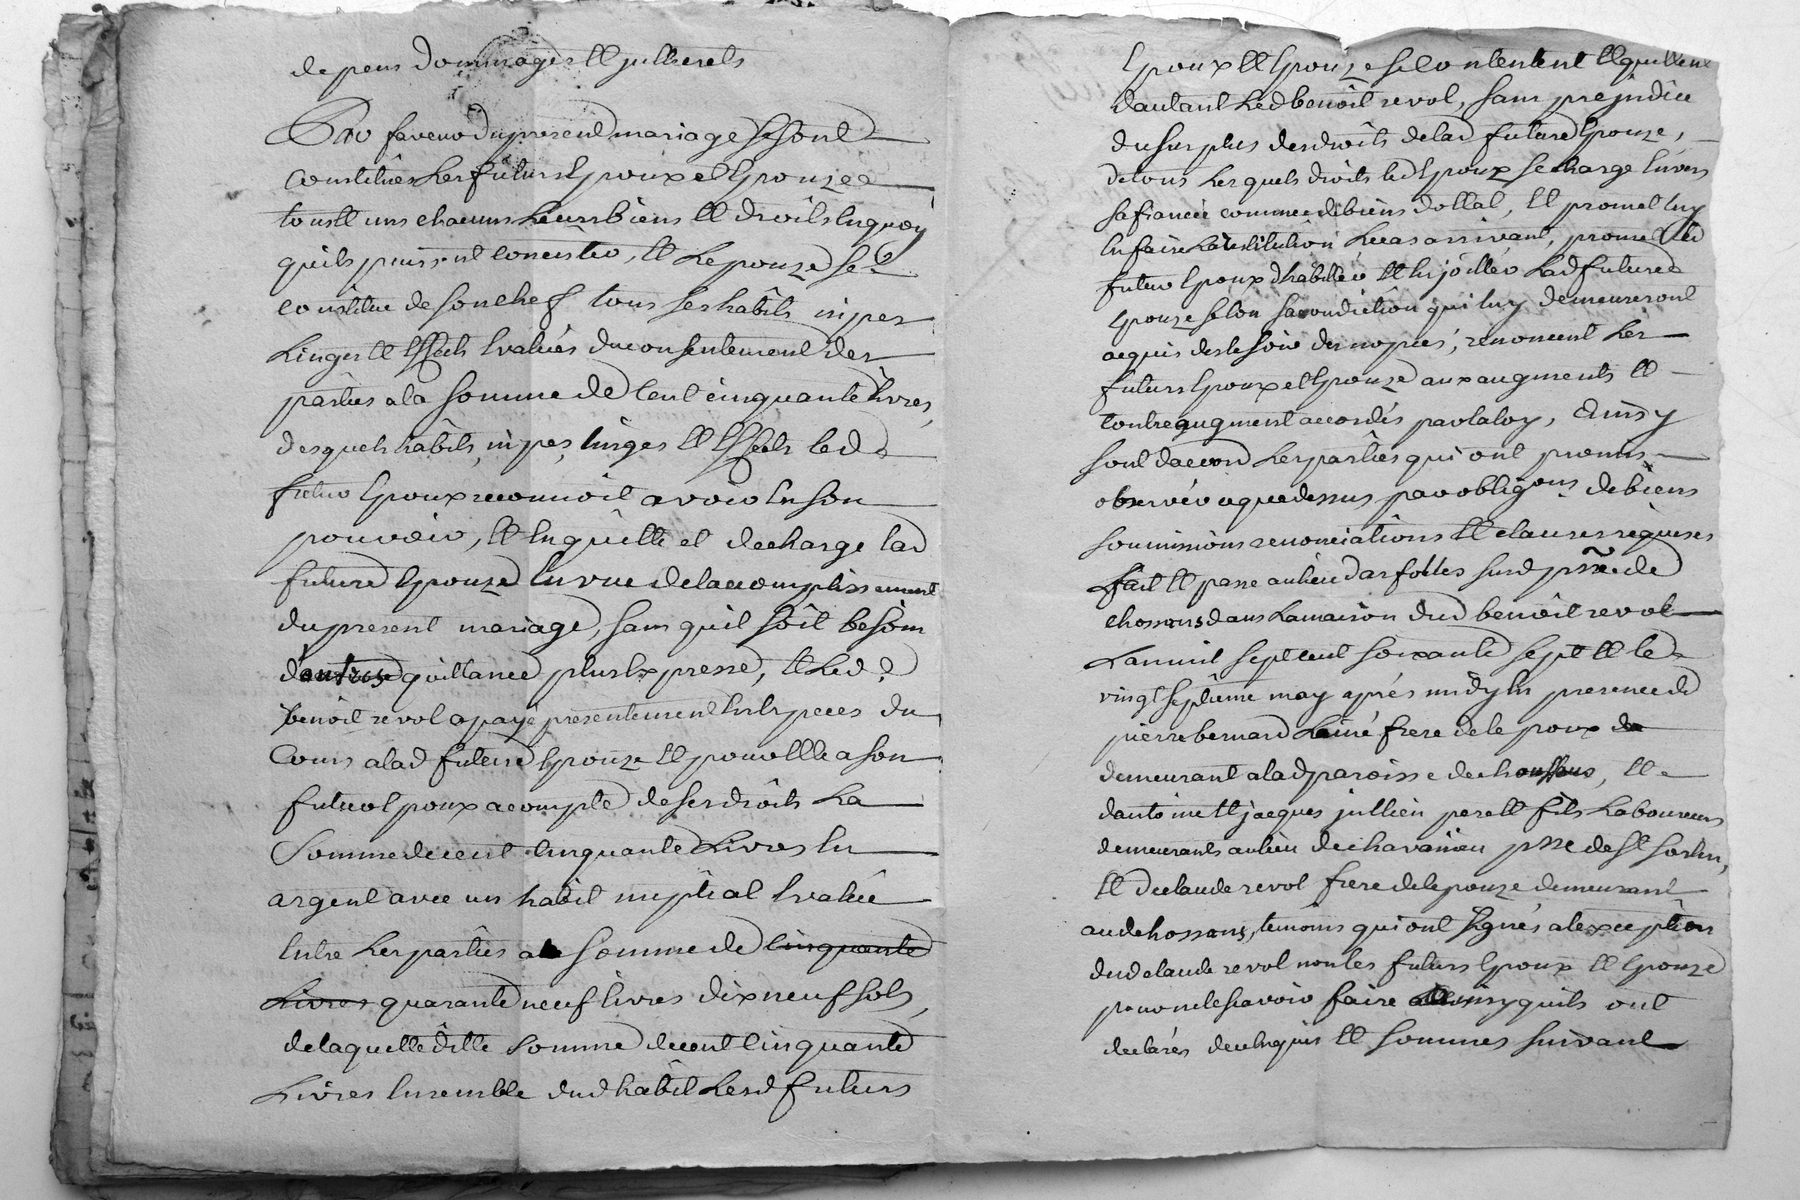 depens dommages et jntherets
En faveur du present mariage se sont
constitués Les futurs Epoux et Epouze
tous et uns chacuns Leurs biens et droits En quoy
quils puissent consister, et Lepouze se
constitue de son chef tous ses habits nipes
Linges et Effects Evalués du consentement des
parties a la somme de Cent cinquante Livres,
desquels habits, nipes, linges et Effects led
futur Epoux reconnoit avoir En son
pouvoir, et En quitte et decharge lad
future Epouze En vue de lacomplissement
du present mariage, sans quil soit besoin
dautres quittance plus Expresse, et Led
benoit revol a payé presentement En Especes du
Cours a lad future Epouze et pour Elle a son
futur Epoux acompte de ses droits La
Somme de cent Cinquante Livres En
argent avec un habit nuptial Evalué
Entre Les parties a la somme de cinquante
Livres quarante neuf livres dix neuf sols,
de laquelle ditte somme de cent Cinquante
Livres Ensemble dud habit Lesd futurs
Epoux et Epouze se contentent et quittent
dautant Led benoit revol, sans prejudice
du surplus des droits de lad future Epouze,
de tous Lesquels droits led Epoux se charge Envers
sa fiancée comme de biens dottal, et promet luy
En faire La restitution Le cas arrivant, promet led
futur Epoux dhabiller et En joiller Lad future
Epouze selon sa condiction qui luy demeureront
acquis des le soir des nopces, renoncent Les
futurs Epoux et Epouze aux augments et
contreaugment accordés par la loy, Ainsy
sont daccord Les parties qui ont promis
observer a que dessus par obligons de biens
soumissions renonciations et clauses requises
fait et passé au lieu dasfolles susd psse de
chossons dans La maison dud benoit revol
Lan mil sept cent soixante sept et le
vingt septieme may aprés midy En presence de
pierre bernard Lainé frere de lepoux
demeurant a lad paroisse de chossons, et
dantoine et jacques jullien pere et fils Laboureurs
demeurants au lieu de chavannieu psse de St sorlin,
et de claude revol frere de lepouze demeurant
aud chossons, temoins qui ont signés a lexception
dud claude revol non les futurs Epoux et Epouze
pour ne le scavoir faire ainsy quils ont
declarés de ce Enquis et sommés suivant